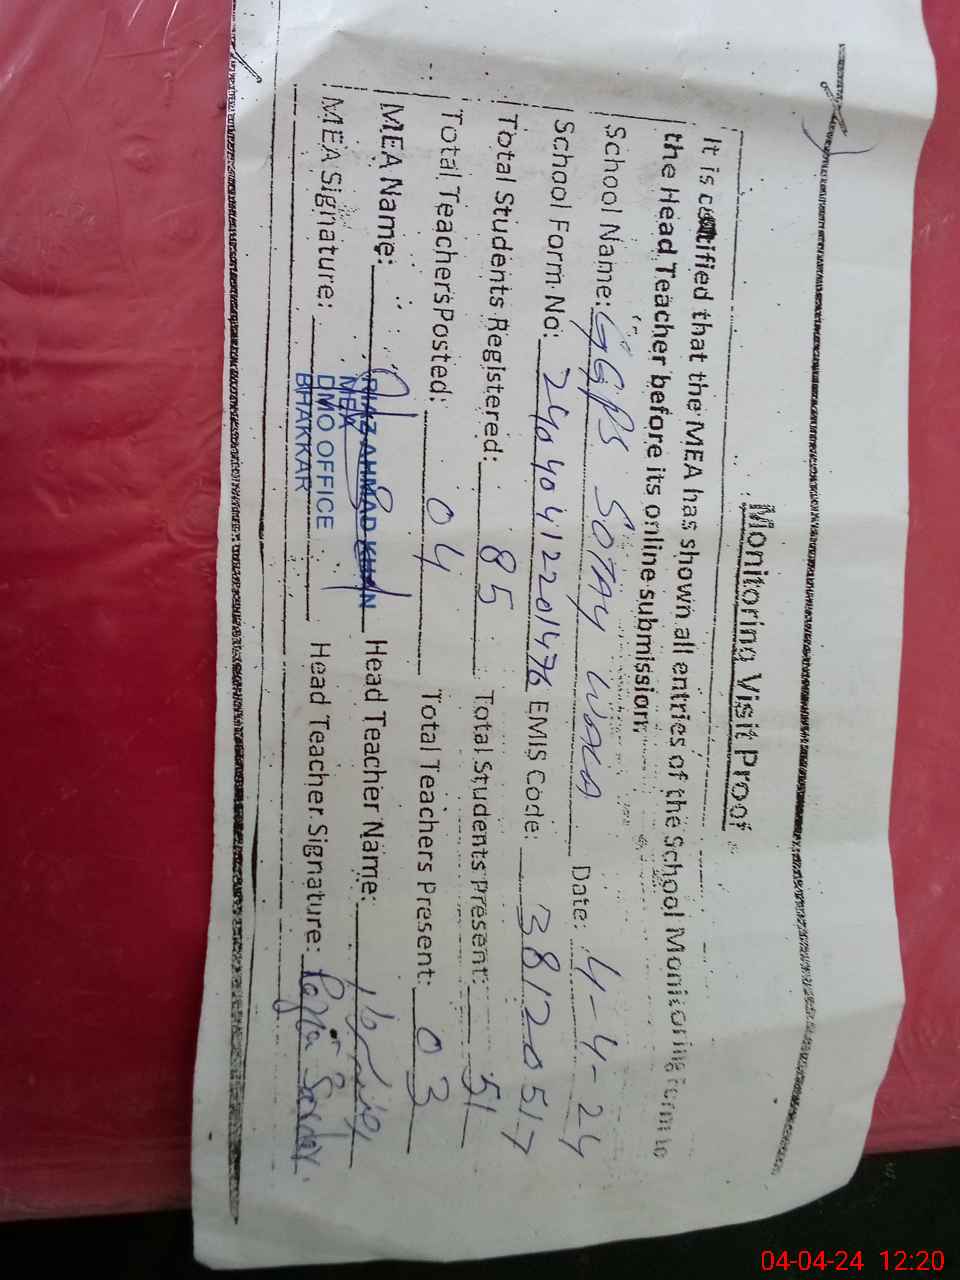 Monitoring Visit Proof
It is certified that the MEA has shown all entries of the School Monitoring Form to
the Head Teacher before its online submission.
School Name: GGPS SOTAY WALA Date: 4-4-24
School Form No: 24040412201476 EMIS Code: 38120517
Total Students Registered: 85 Total Students Present: 51
Total Teachers Posted: 04 Total Teachers Present: 03
MEA Name: RIAZ AHMAD KHAN Head Teacher Name:
MEA
MEA Signature: DMO OFFICE Head Teacher Signature:
BHAKKAR
04-04-24 12:20